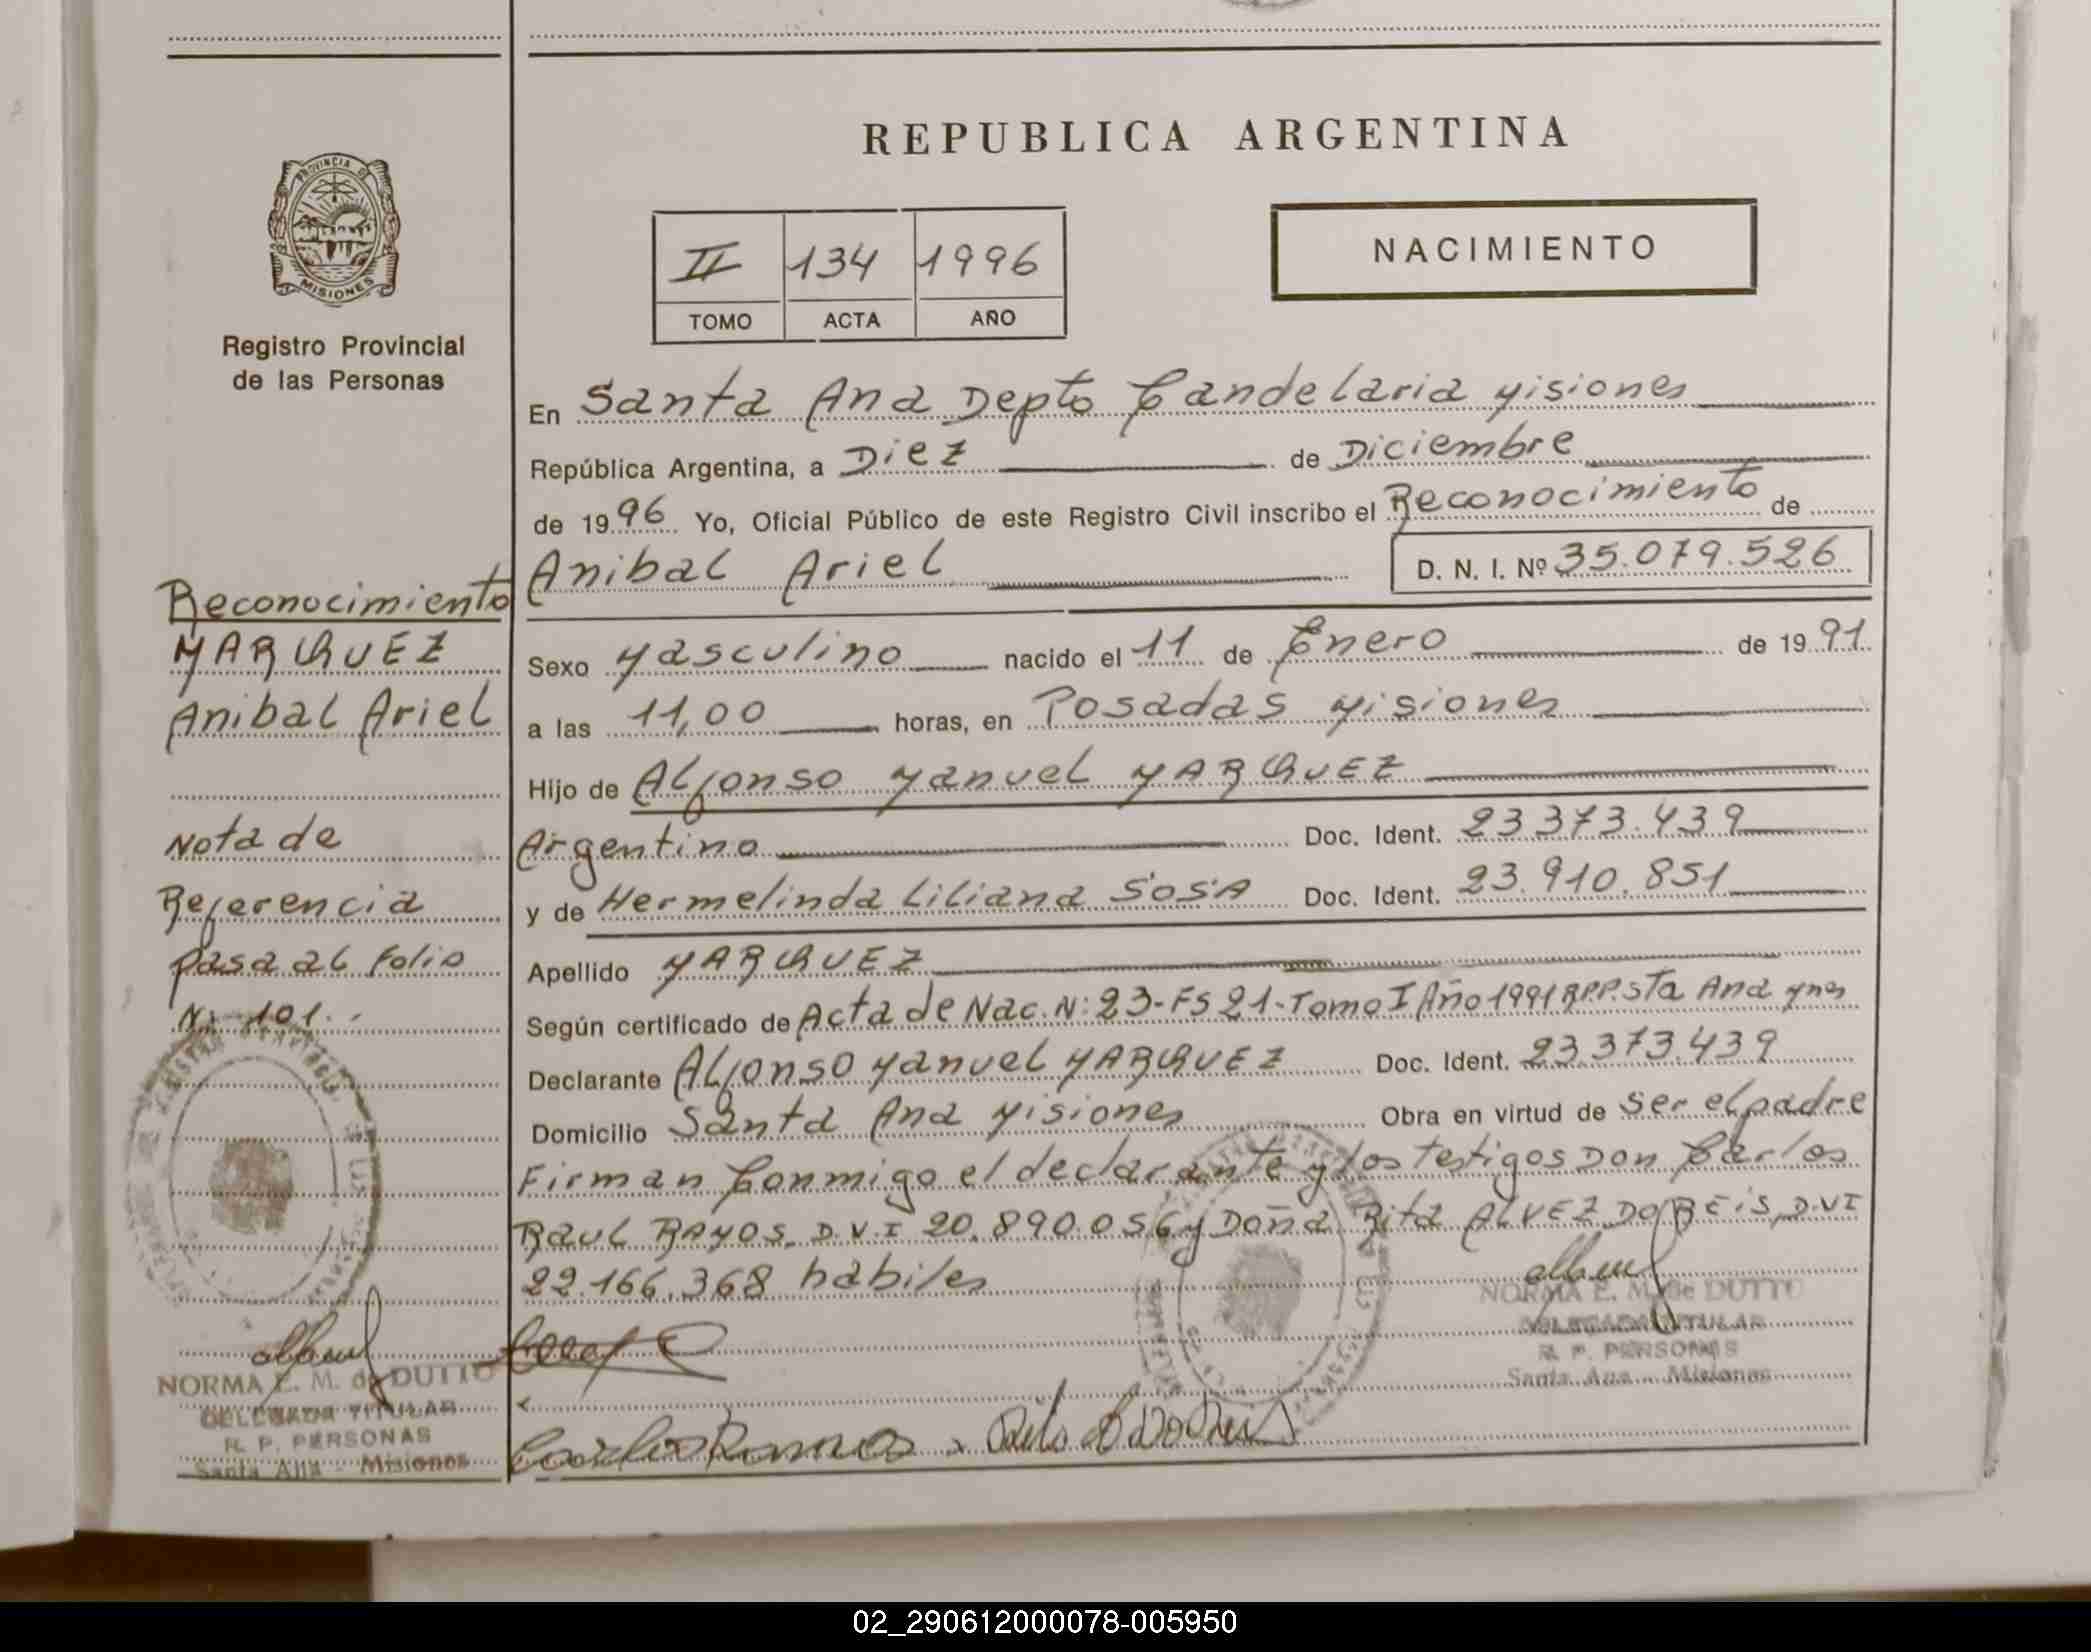 REPUBLICA ARGENTINA
PROVINCIA DE
MISIONES
Registro Provincial
de las Personas
II 134 1996
TOMO ACTA AÑO
NACIMIENTO
En Santa Ana Depto Candelaria Misiones
República Argentina, a Diez de Diciembre
de 1996 Yo, Oficial Público de este Registro Civil inscribo el Reconocimiento de
Anibal Ariel D. N. I. Nº 35.079.526
Sexo Masculino nacido el 11 de Enero de 1991
a las 11,00 horas, en Posadas Misiones
Hijo de Alfonso Manuel MARQUEZ
Argentino Doc. Ident. 23373.439
y de Hermelinda Liliana SOSA Doc. Ident. 23.910.851
Apellido MARQUEZ
Según certificado de Acta de Nac. N: 23-FS 21-Tomo I Año 1991 R.P.P. Sta Ana Mnes
Declarante Alfonso Manuel MARQUEZ Doc. Ident. 23373.439
Domicilio Santa Ana Misiones Obra en virtud de Ser el padre
Firman Conmigo el declarante y los testigos Don Carlos
Raul RAMOS, D.N.I 20.890.056 y Doña Rita ALVEZ DO REIS, D.N.I
22.166.368 habiles
NORMA E. M. de DUTTO
DELEGADA TITULAR
R. P. PERSONAS
Santa Ana - Misiones
Reconocimiento
MARQUEZ
Anibal Ariel
Nota de
Referencia
pasa al Folio
N: 101.-
NORMA E. M. de DUTTO
DELEGADA TITULAR
R. P. PERSONAS
Santa Ana - Misiones
02_290612000078-005950